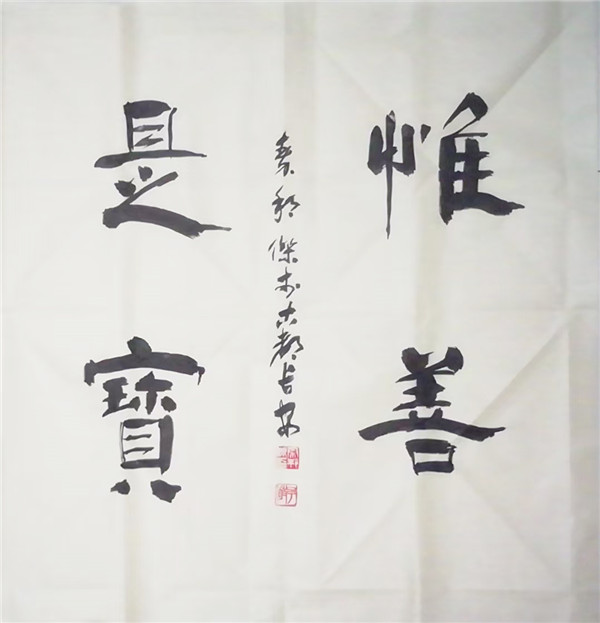 惟善
是寶
癸卯 傑書於古都長安